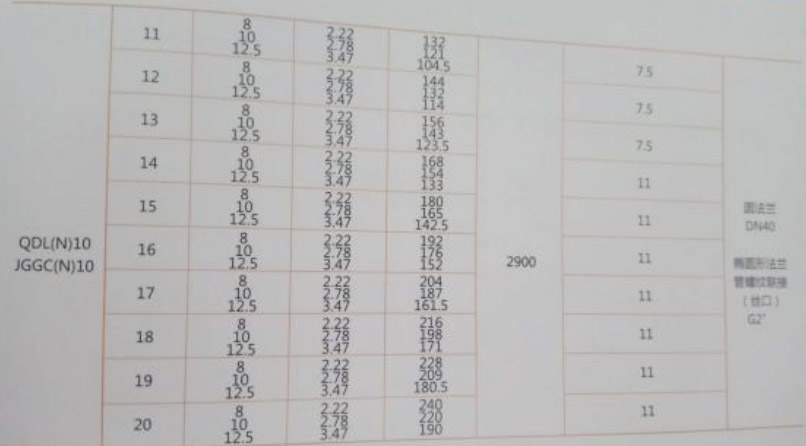 11 8 2.22 132
10 2.78 121
12.5 3.47 104.5
7.5
12 8 2.22 144
10 2.78 132
12.5 3.47 114
7.5
13 8 2.22 156
10 2.78 143
12.5 3.47 123.5
7.5
14 8 2.22 168
10 2.78 154
12.5 3.47 133
11
15 8 2.22 180
10 2.78 165
12.5 3.47 142.5
11
QDL(N)10
JGGC(N)10
16 8 2.22 192
10 2.78 176
12.5 3.47 152
2900
11
17 8 2.22 204
10 2.78 187
12.5 3.47 161.5
11
18 8 2.22 216
10 2.78 198
12.5 3.47 171
11
19 8 2.22 228
10 2.78 209
12.5 3.47 180.5
11
20 8 2.22 240
10 2.78 220
12.5 3.47 190
11
圆法兰
DN40
椭圆形法兰
管螺纹联接
(丝口)
G2"